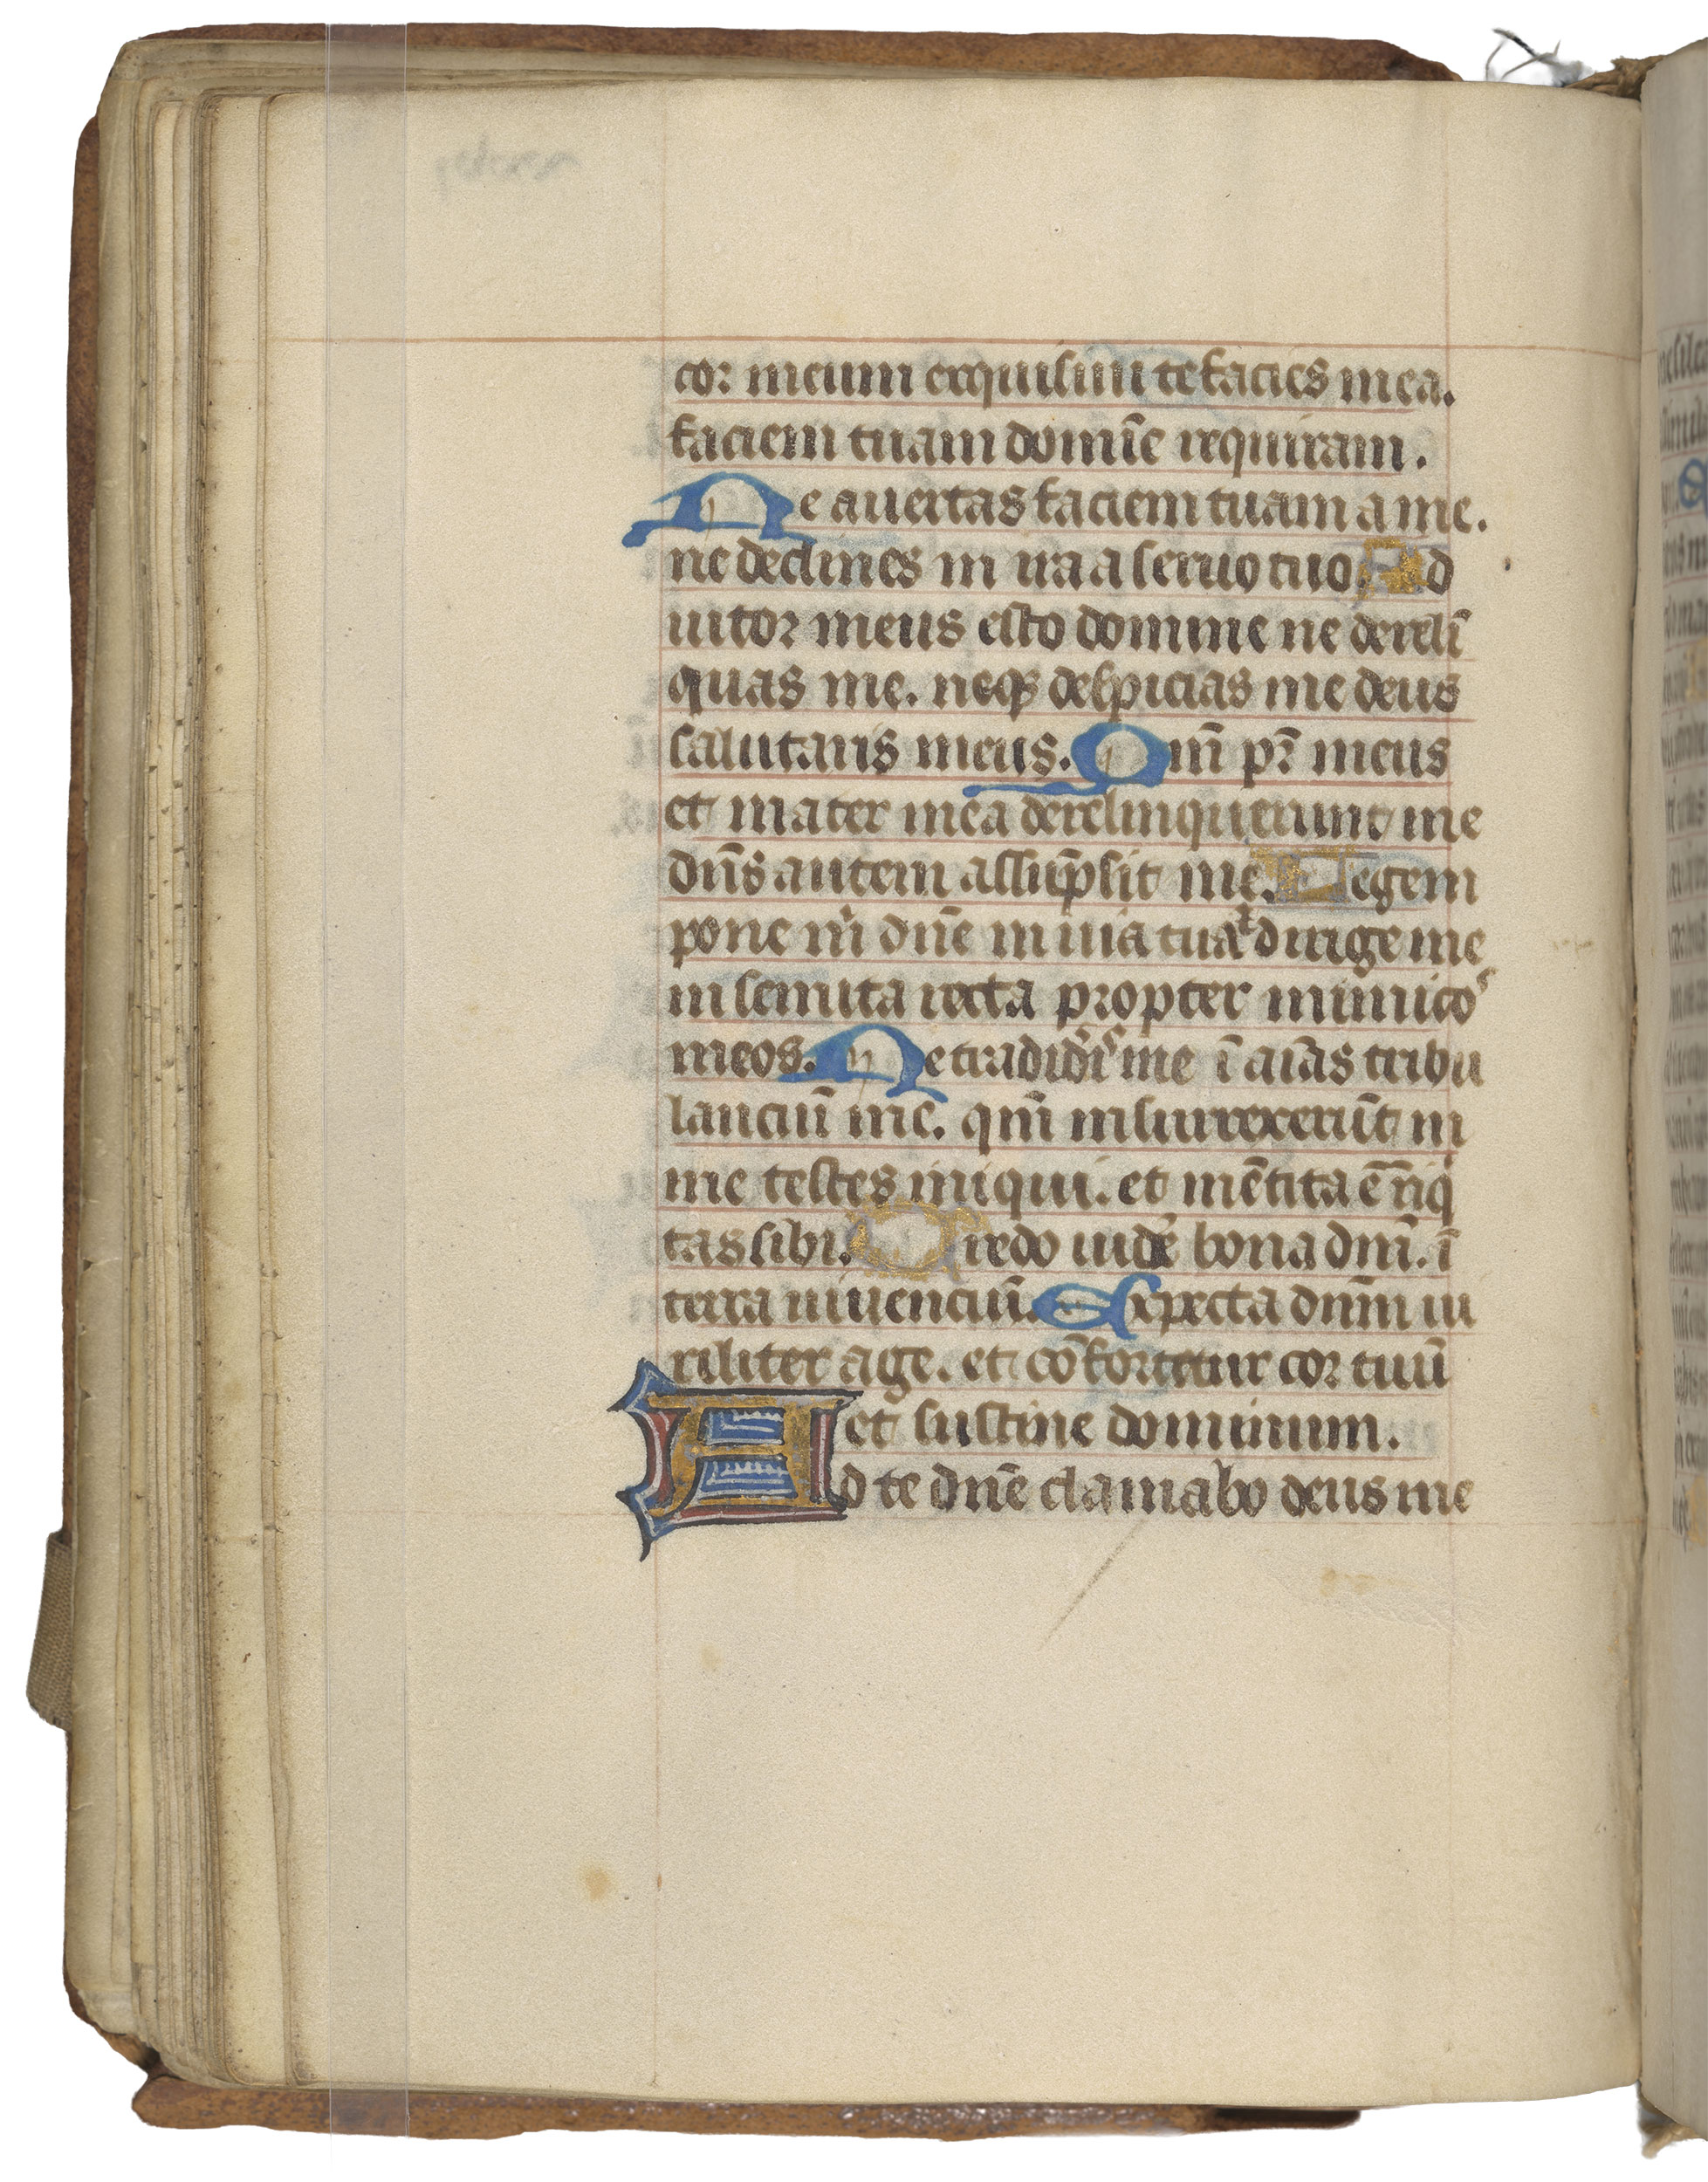 cor meum exquisiuit te facies mea.
faciem tuam domīe requiram.
Ne auertas faciem tuam a me.
ne declines in ira a seruo tuo. Ad
iutor meus esto domine ne derelī
quas me. neqꝫ despicias me deus
salutaris meus. Qm̄ pr̄ meus
et mater mea derelinquerunt me
dn̄s autem assūpsit me. Legem
pone m̄ dn̄e in uia tua et dirige me
in semita recta propter inimicos
meos. Ne tradid̄is me ī aīas tribu
lanciū me. qm̄ insurrexerūt in
me testes iniqui. et mētita ē īiq
tas sibi. Credo uidē bona dn̄i. ī
terra uiuenciū. Expecta dn̄m ui
riliter age. et cōfortetur cor tuū
et sustine dominum.
Ad te dn̄e clamabo deus me